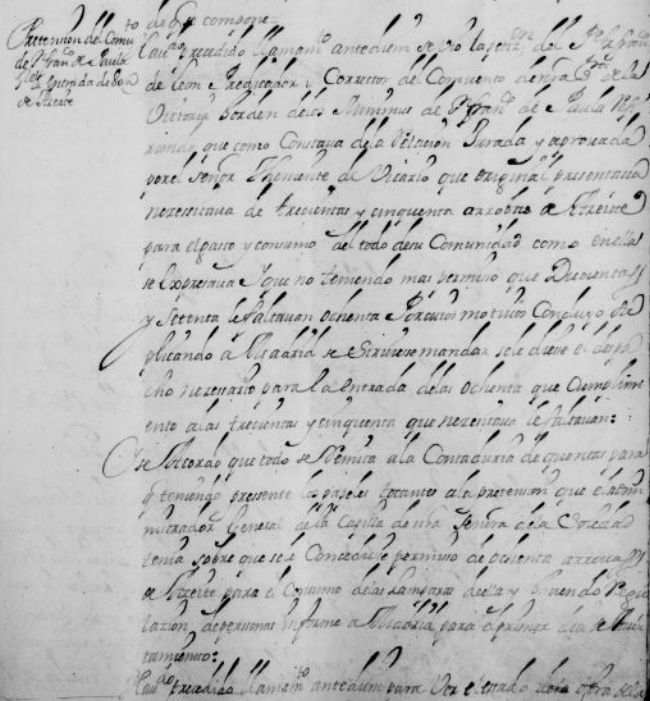 de que compone =
Pretension del Comto
de S. Franco de Paula
la entrada de
de Azeite
Haviº precedido llamamto antediem se vio la petizon del Pe fr Franco
de leon Predicador y Corrector del Comvento de nra Sra de la
Victoria horden de los Minimos de S Franco de Paula
que como Constava de la Relacion Jurada y aprovada
por el señor Theniente de Vicario que original presentava
nezesitava de trecientas y cinquenta arrobas de Azeite
para el gasto y consumo del todo de su Comunidad como en ella
se Expresava Y que no teniendo mas permiso que Ducientas
y Setenta le faltavan ochenta Por cuios motivos Concluyo su
plicando a Madrid se sirviese mandar se le diese el despa
cho nezesario para la entrada de las ochenta que Cumplim
ento a las trecientas y cinquenta que nezesitava le faltavan:
se Acordo que todo se Remita a la Contaduria de quentas para
q teniendo presente los papeles tocantes a la pretension que el admi
nistrador General de la Casilla de nra Señora de la Soledad
tenia sobre que se le Concediese permiso de ochenta arrovas
de Azeite para el Consumo de las lamparas de ella y haviendo Regu
lazion de personas Informe a Madrid para el primer dia de Aiun
tamiento:
Havido precedido llamamto antediem para Ver el estado de la obra de la